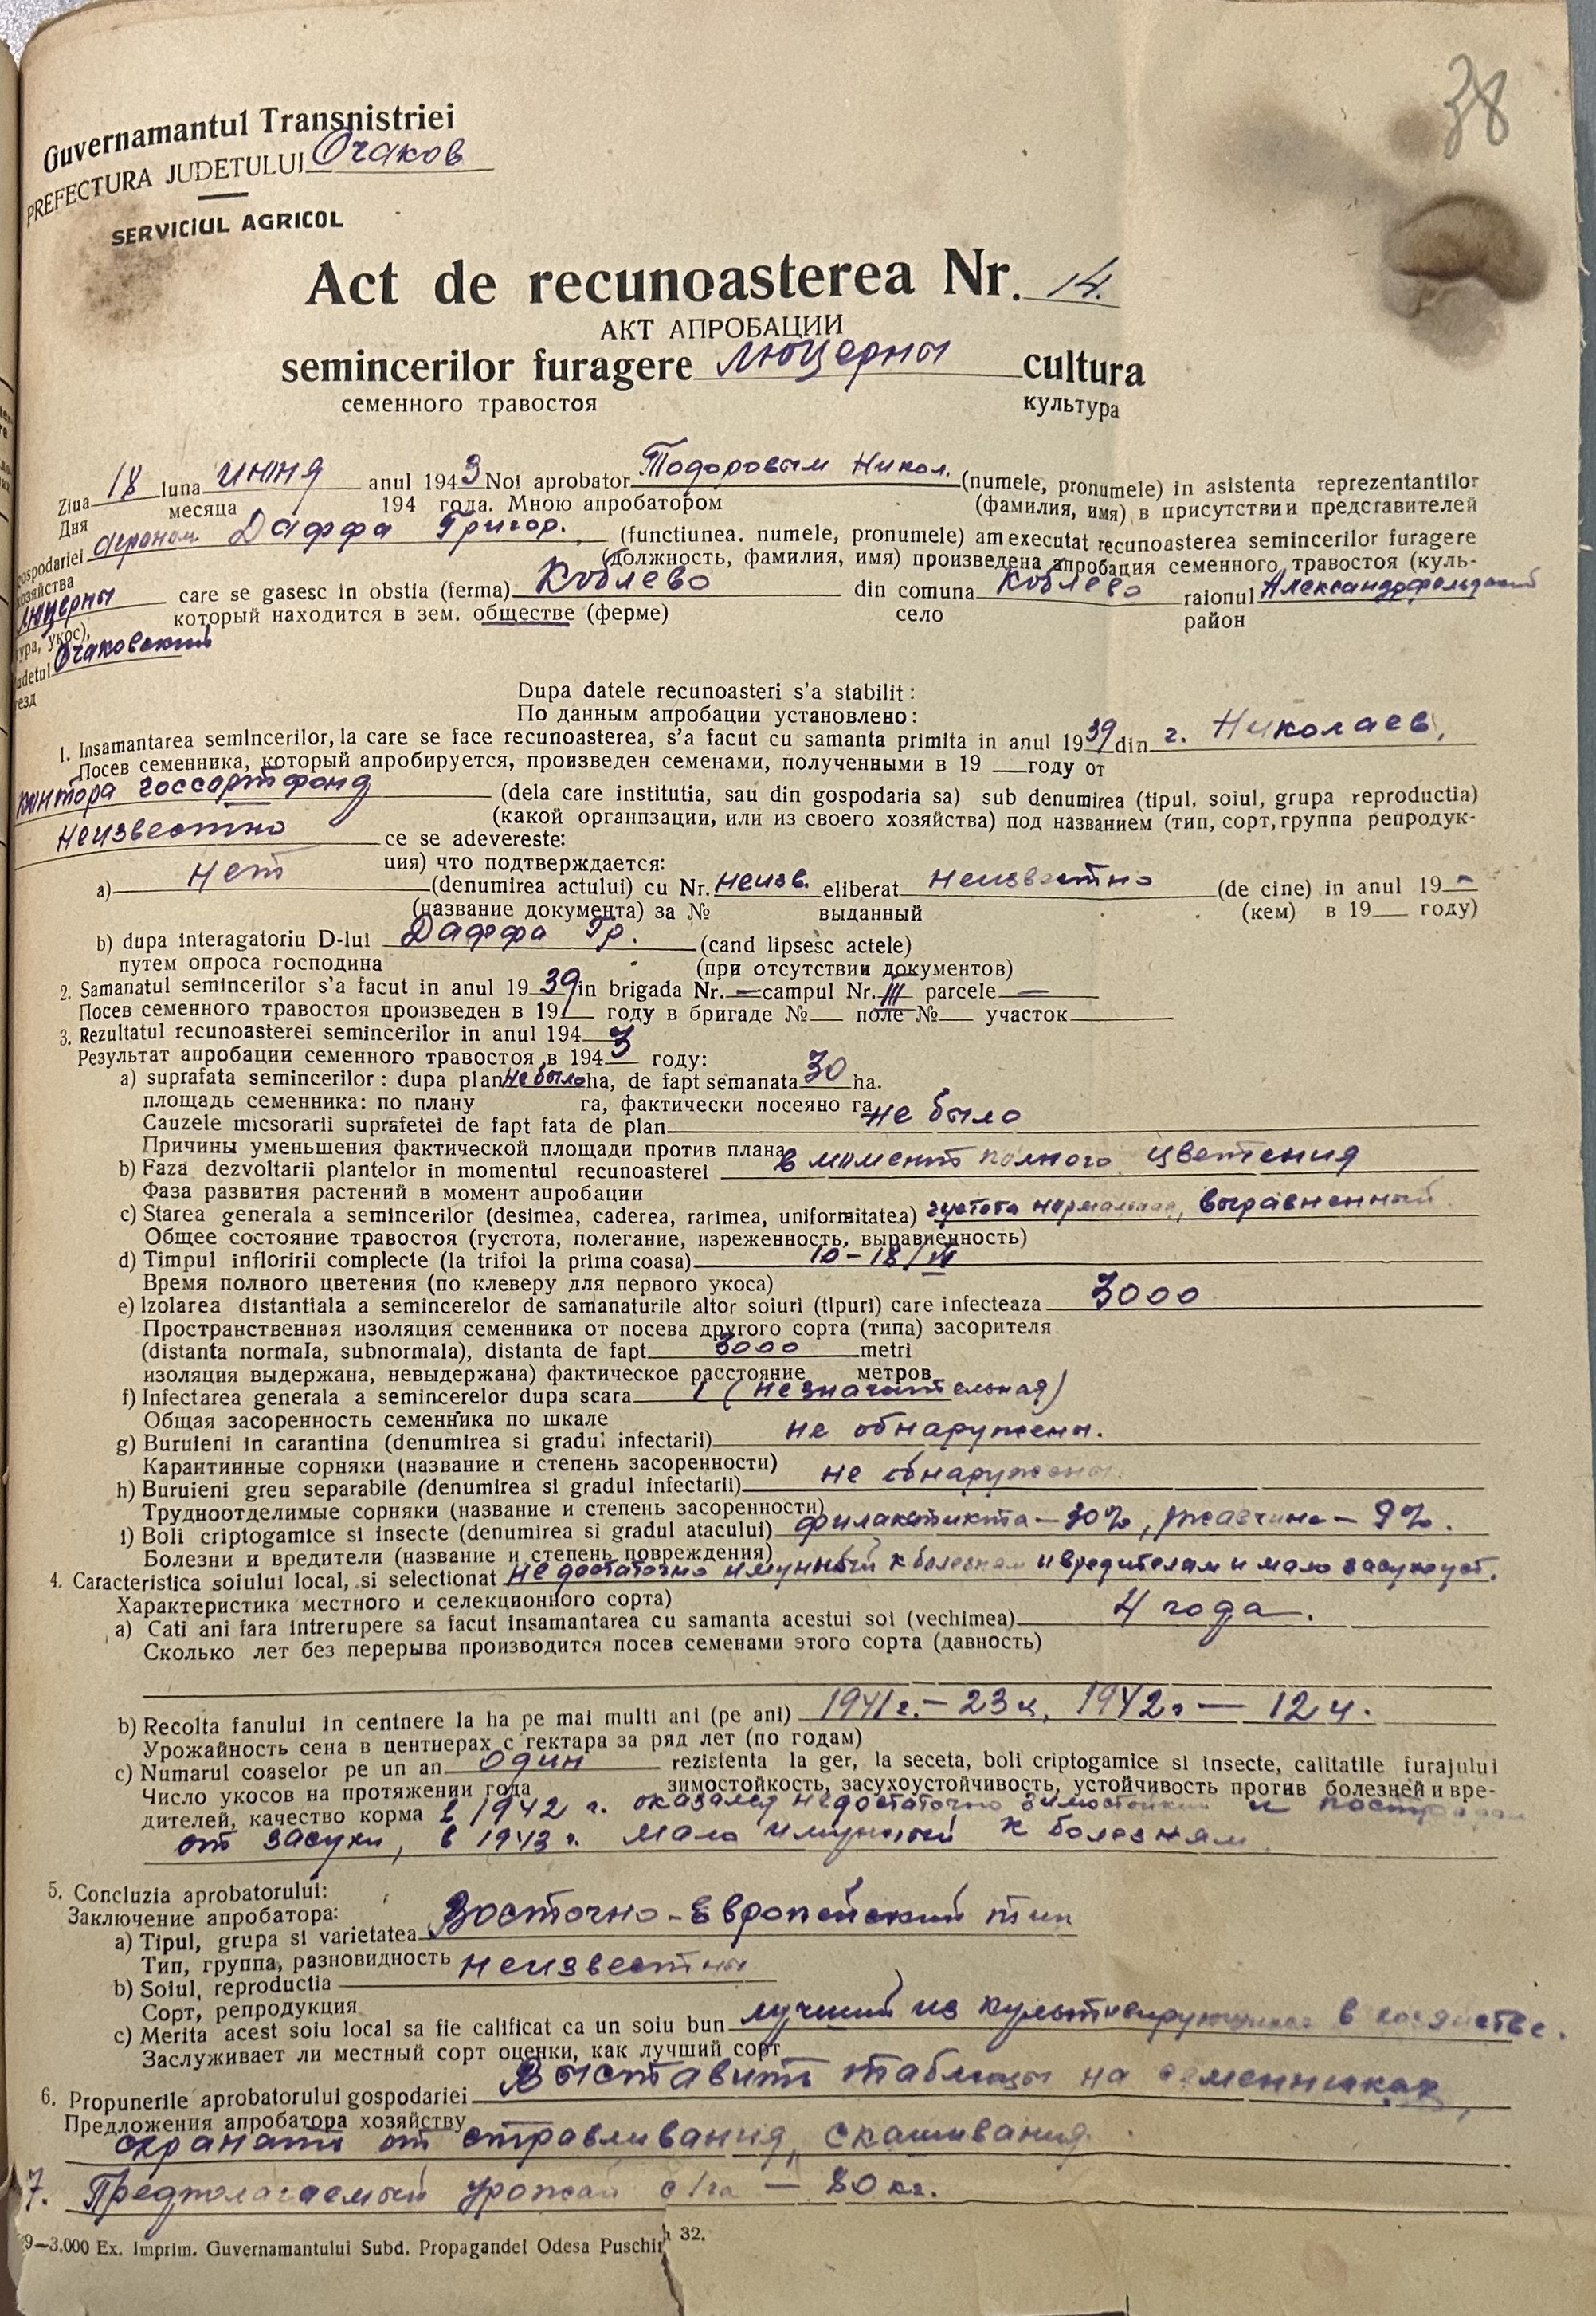 38
Guvernamantul Transnistriei
PREFECTURA JUDETULUI Очаков
SERVICIUL AGRICOL
Act de recunoasterea Nr. 14.
АКТ АПРОБАЦИИ
semincerilor furagere люцерны cultura
семенного травостоя культура
Ziua 18 luna июня anul 1943 Noi aprobator Тодоровым Никол. (numele, pronumele) in asistenta reprezentantilor
Дня месяца 194 года. Мною апробатором (фамилия, имя) в присутствии представителей
ospodariei агроном Даффа Григор. (functiunea. numele, pronumele) am executat recunoasterea semincerilor furagere
хозяйства (должность, фамилия, имя) произведена апробация семенного травостоя (куль-
люцерны care se gasesc in obstia (ferma) Коблево din comuna Коблево raionul Александрфельдский
тура, укос), который находится в зем. обществе (ферме) село район
udetul Очаковский
езд
Dupa datele recunoasteri s'a stabilit:
По данным апробации установлено:
1. Insamantarea semincerilor, la care se face recunoasterea, s'a facut cu samanta primita in anul 1939 din г. Николаев,
Посев семенника, который апробируется, произведен семенами, полученными в 19 году от
контора госсортфонд (dela care institutia, sau din gospodaria sa) sub denumirea (tipul, soiul, grupa reproductia)
(какой органпзации, или из своего хозяйства) под названием (тип, сорт, группа репродук-
неизвестно ce se adevereste:
ция) что подтверждается:
a) нет (denumirea actului) cu Nr. неизв. eliberat неизвестно (de cine) in anul 19 -
(название документа) за № выданный (кем) в 19 году)
b) dupa interagatoriu D-lui Даффа Гр. (cand lipsesc actele)
путем опроса господина (при отсутствии документов)
2. Samanatul semincerilor s'a facut in anul 1939 in brigada Nr. — campul Nr. III parcele —
Посев семенного травостоя произведен в 19 году в бригаде № поле № участок
3. Rezultatul recunoasterei semincerilor in anul 194 3
Результат апробации семенного травостоя в 194 году:
a) suprafata semincerilor: dupa plan не было ha, de fapt semanata 30 ha.
площадь семенника: по плану га, фактически посеяно га
Cauzele micsorarii suprafetei de fapt fata de plan не было
Причины уменьшения фактической площади против плана
b) Faza dezvoltarii plantelor in momentul recunoasterei в момент полного цветения
Фаза развития растений в момент апробации
c) Starea generala a semincerilor (desimea, caderea, rarimea, uniformitatea) густота нормальная, выравненный
Общее состояние травостоя (густота, полегание, изреженность, выравненность)
d) Timpul infloririi complecte (la trifoi la prima coasa) 10-18/VI
Время полного цветения (по клеверу для первого укоса)
e) Izolarea distantiala a semincerelor de samanaturile altor soiuri (tipuri) care infecteaza 3000
Пространственная изоляция семенника от посева другого сорта (типа) засорителя
(distanta normala, subnormala), distanta de fapt 3000 metri
изоляция выдержана, невыдержана) фактическое расстояние метров
f) Infectarea generala a semincerelor dupa scara 1 (незначительная)
Общая засоренность семенника по шкале
g) Buruieni in carantina (denumirea si gradul infectarii) не обнаружены.
Карантинные сорняки (название и степень засоренности)
h) Buruieni greu separabile (denumirea si gradul infectarii) не обнаружены.
Трудноотделимые сорняки (название и степень засоренности)
i) Boli criptogamice si insecte (denumirea si gradul atacului) - 30%, ржавчина - 9%.
Болезни и вредители (название и степень повреждения)
4. Caracteristica soiului local, si selectionat не достаточно имунный к болезням и вредителям и мало засухоуст.
Характеристика местного и селекционного сорта)
a) Cati ani fara intrerupere sa facut insamantarea cu samanta acestui soi (vechimea) 4 года.
Сколько лет без перерыва производится посев семенами этого сорта (давность)
b) Recolta fanului in centnere la ha pe mai multi ani (pe ani) 1941 г. - 23 ц, 1942 г — 12 ц.
Урожайность сена в центнерах с гектара за ряд лет (по годам)
c) Numarul coaselor pe un an один rezistenta la ger, la seceta, boli criptogamice si insecte, calitatile furajului
Число укосов на протяжении года зимостойкость, засухоустойчивость, устойчивость против болезней и вре-
дителей, качество корма в 1942 г. оказался недостаточно зимостойким и пострадал
от засухи, в 1943 г. мало имунный к болезням
5. Concluzia aprobatorului:
Заключение апробатора:
a) Tipul, grupa si varietatea Восточно-Европейский тип
Тип, группа, разновидность
b) Soiul, reproductia неизвестны
Сорт, репродукция
c) Merita acest soiu local sa fie calificat ca un soiu bun лучший из культивирующихся в хозяйстве.
Заслуживает ли местный сорт оценки, как лучший сорт
6. Propunerile aprobatorului gospodariei Выставить таблицы на семенниках,
Предложения апробатора хозяйству
охранять от стравливания, скашивания.
7. Предполагаемый урожай с/га — 80 кг.
9—3.000 Ex. Imprim. Guvernamantului Subd. Propagandei Odesa Puschin 32.